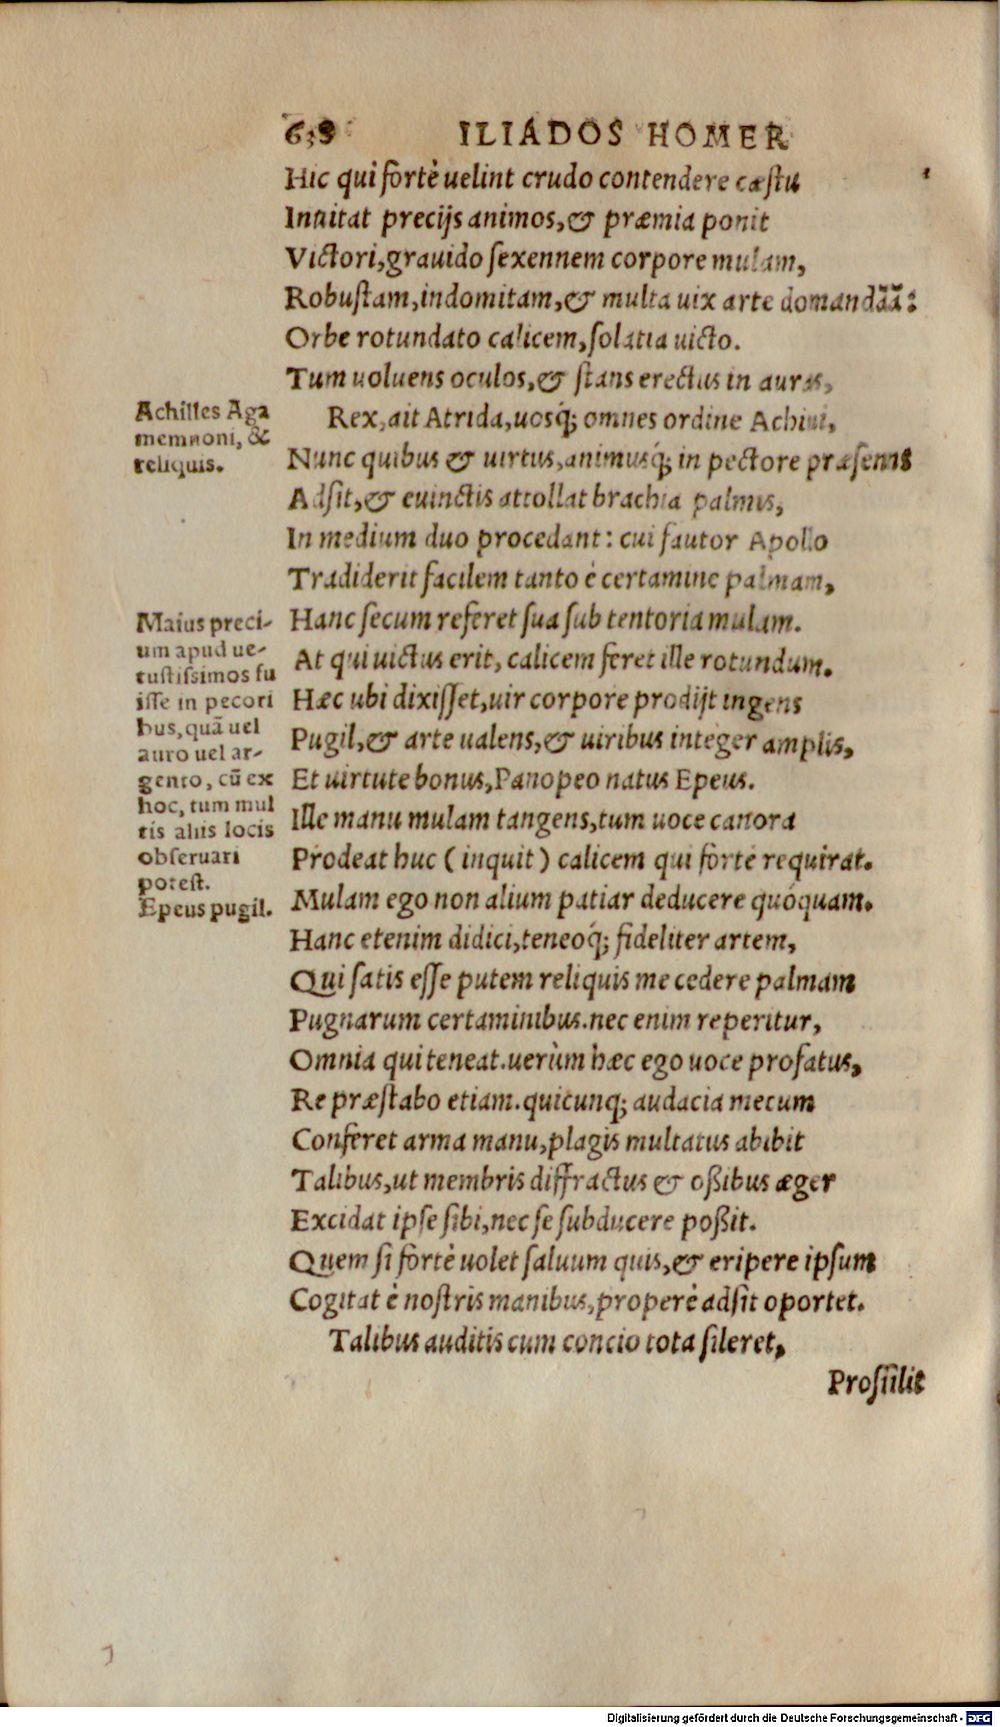 638 ILIADOS HOMER
Hic qui fortè uelint crudo contendere cæstu
Inuitat precijs animos, & præmia ponit
Victori, grauido sexennem corpore mulam,
Robustam, indomitam, & multa uix arte domandã:
Orbe rotundato calicem, solatia uicto.
Tum uoluens oculos, & stans erectus in auras,
Rex, ait Atrida, uosq́; omnes ordine Achiui,
Nunc quibus & uirtus, animusq́; in pectore præsens
Adsit, & euinctis attollat brachia palmis,
In medium duo procedant: cui fautor Apollo
Tradiderit facilem tanto è certamine palmam,
Hanc secum referet sua sub tentoria mulam.
At qui uictus erit, calicem feret ille rotundum.
Hæc ubi dixisset, uir corpore prodijt ingens
Pugil, & arte ualens, & uiribus integer amplis,
Et uirtute bonus, Panopeo natus Epeus.
Ille manu mulam tangens, tum uoce canora
Prodeat huc (inquit) calicem qui fortè requirat.
Mulam ego non alium patiar deducere quóquam.
Hanc etenim didici, teneoq́; fideliter artem,
Qui satis esse putem reliquis me cedere palmam
Pugnarum certaminibus. nec enim reperitur,
Omnia qui teneat. uerùm hæc ego uoce profatus,
Re præstabo etiam. quicunq; audacia mecum
Conferet arma manu, plagis multatus abibit
Talibus, ut membris diffractus & oßibus æger
Excidat ipse sibi, nec se subducere poßit.
Quem si fortè uolet saluum quis, & eripere ipsum
Cogitat è nostris manibus, properè adsit oportet.
Talibus auditis cum concio tota sileret,
Prosiilit
Achilles Aga
memnoni, &
reliquis.
Maius preci-
um apud ue-
tustissimos fu
isse in pecori
bus, quã uel
auro uel ar-
gento, cũ ex
hoc, tum mul
tis aliis locis
obseruari
potest.
Epeus pugil.
Digitalisierung gefördert durch die Deutsche Forschungsgemeinschaft - DFG